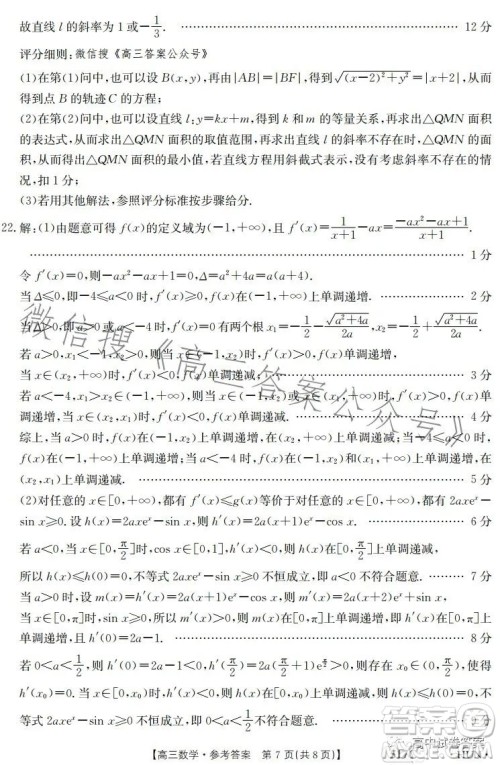 故直线 l 的斜率为 1 或 -1/3. …… 12 分
评分细则:微信搜《高三答案公众号》
(1)在第(1)问中,也可以设 B(x,y),再由|AB|=|BF|,得到√((x-2)²+y²)=|x+2|,从而
得到点 B 的轨迹 C 的方程;
(2)在第(2)问中,也可以设直线 l:y=kx+m,得到 k 和 m 的等量关系,再求出△QMN 面积的
表达式,从而求出△QMN 面积的取值范围,再求出直线 l 的斜率不存在时,△QMN 面积,从而
得出△QMN 面积的最小值,若直线方程用斜截式表示,没有考虑斜率不存在的情
况,扣 1 分;
(3)若用其他解法,参照评分标准按步骤给分.
22.解:(1)由题意可得 f(x)的定义域为(-1,+∞),且 f′(x)=1/(x+1)-ax=(-ax²-ax+1)/(x+1).
…… 1 分
令 f′(x)=0,则-ax²-ax+1=0,Δ=a²+4a=a(a+4).
当 Δ≤0,即-4≤a<0 时,f(x)在(-1,+∞)上单调递增. …… 2 分
当 Δ>0,即 a>0 或 a<-4 时,f′(x)=0 有两个根 x₁=-1/2-√(a²+4a)/2a,x₂=-1/2+√(a²+4a)/2a.
若 a>0,x₁<-1,当 x∈(-1,x₂)时,f′(x)>0,f(x)单调递增,
当 x∈(x₂,+∞)时,f′(x)<0,f(x)单调递减. …… 3 分
若 a<-4,x₁>x₂>-1,当 x∈(-1,x₂)和(x₁,+∞)时,f′(x)>0,f(x)单调递增,
当 x∈(x₂,x₁)时,f′(x)<0,f(x)单调递减. …… 4 分
综上,当 a>0 时,f(x)在(-1,x₂)上单调递增,在(x₂,+∞)上单调递减;当-4≤a<0
时,f(x)在(-1,+∞)上单调递增;当 a<-4 时,f(x)在(-1,x₂),(x₁,+∞)上单调递
增,在(x₂,x₁)上单调递减. …… 5 分
(2)对任意的 x∈[0,+∞),都有 f(x)≤g(x)等价于对任意的 x∈[0,+∞),都有 2axeˣ-
sin x≥0. 设 h(x)=2axeˣ-sin x,则 h′(x)=2a(x+1)eˣ-cos x. …… 6 分
若 a<0,当 x∈[0,π/2]时,cos x∈[0,1],h′(x)<0,则 h(x)在[0,π/2]上单调递减,
所以 h(x)≤h(0)=0,不等式 2axeˣ-sin x≥0 不恒成立,即 a<0 不符合题意. …… 7 分
若 a>0,当 x∈[0,π]时,sin x≥0,则 h′(x)=2a(x+2)eˣ+sin x>0,即 h′(x)在[0,π]上
单调递增,且 h′(0)=2a-1. …… 8 分
若 0<a<1/2,则 h′(0)=2a-1<0,h′(π/2)=2a(π/2+1)e^(π/2)>0,则存在 x₀∈(0,π/2),使得
h′(x₀)=0. 当 x∈(0,x₀)时,h′(x)<0,则 h(x)在[0,x₀]上单调递减,则 h(x)≤h(0)=0,不
等式 2axeˣ-sin x≥0 不恒成立,即 0<a<1/2 不符合题意.
【高三数学·参考答案 第 7 页(共 8 页)】
微信搜《高三答案公众号》
高中试卷答案